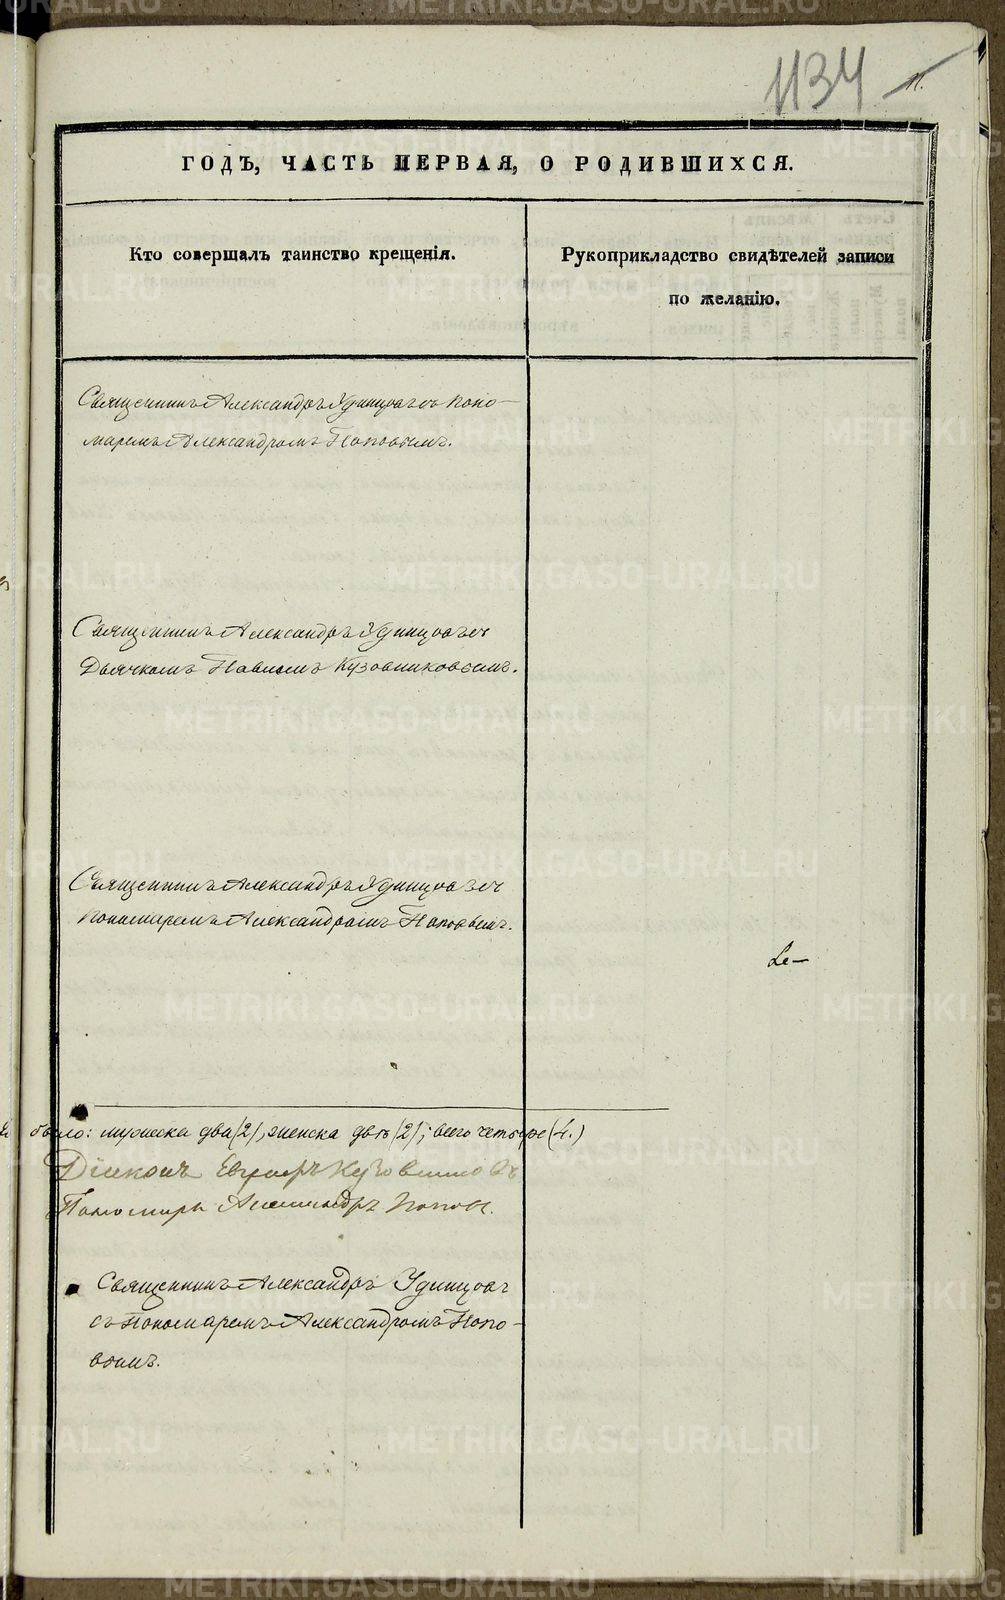 1134 11.
ГОДЪ, ЧАСТЬ ПЕРВАЯ, О РОДИВШИХСЯ.
Кто совершалъ таинство крещенія.
Рукоприкладство свидѣтелей записи
по желанію.
Священникъ Александръ Удинцовъ съ поно-
маремъ Александромъ Поповымъ.
Священникъ Александръ Удинцовъ съ
Дьячкомъ Павломъ Кузовниковымъ.
Священникъ Александръ Удинцовъ съ
пономаремъ Александромъ Поповымъ.
было: мужеска два (2), женска двѣ (2); всего четыре (4.)
Діаконъ Кузовниковъ
Пономарь Александръ Поповъ.
Священникъ Александръ Удинцовъ
съ Пономаремъ Александромъ Попо-
вымъ.
METRIKI.GASO-URAL.RU